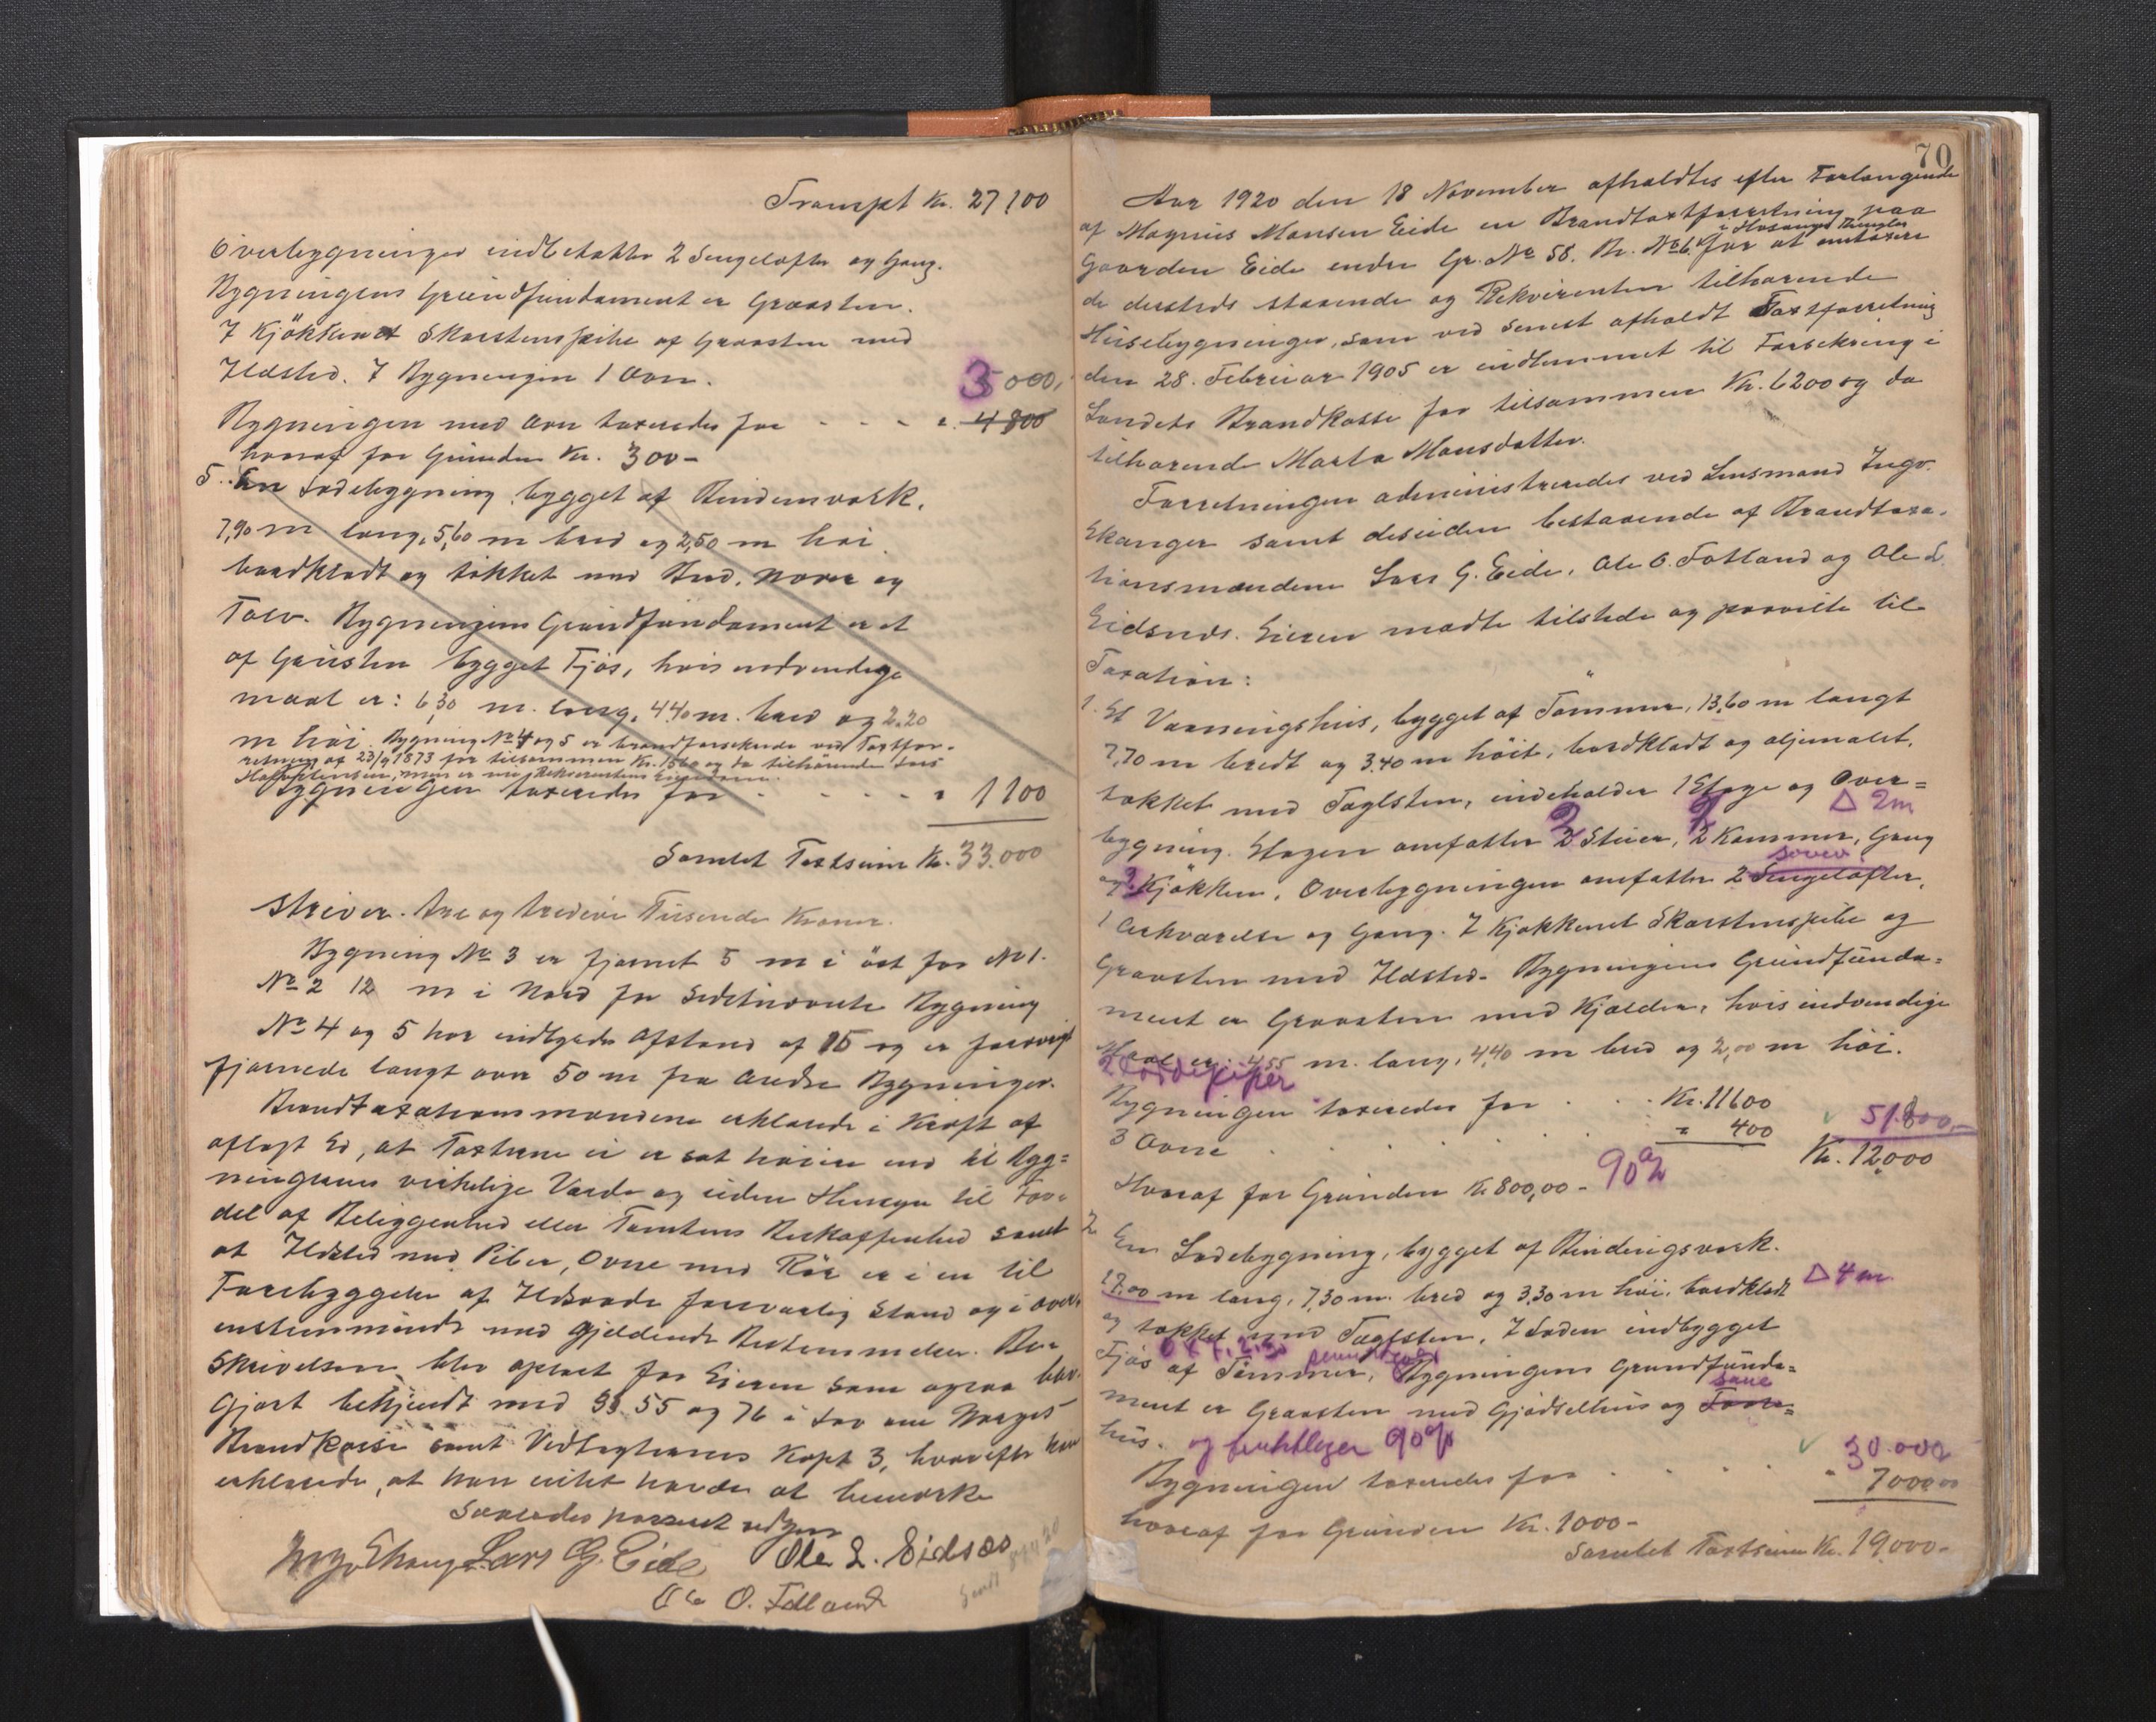 Transpt Kr. 27100
Overbygningen indbefatter 2 Sengelofter og Gang.
Bygningens Grundfundament er Graasten.
I Kjökkenet Skorstenspibe af Graasten med
Ildsted. I Bygningen 1 Ovn.
35000,
Bygningen med Ovn taxeredes for - - - ". 4800
hvoraf for Grunden Kr. 300-
5. En Ladebygning, bygget af Bindensværk,
7,90 m lang, 5,60 m bred og 2,50 m höi
bordklædt og tækket med Bord, Næver og
Torv. Bygningens Grundfundament er et
af Graasten bygget Fjös, hvis indvendige
maal er: 6,30 m. lang, 4,40 m. bred og 2,20
m höi. Bygning No 4 og 5 er brandforsikrede ved Taxtfor-
retning af 23/9 1873 for tilsammen Kr. 1560 og da tilhörende Lars
men er nu Rekvirentens Eiendom.
Bygningen taxeredes for - - - - - " 1100
Samlet Taxtsum Kr. 33.000
Skriver tre og tredive Tusende Kroner.
Bygning No 3 er fjernet 5 m i öst for No 1.
No 2 12 m i Nord for sidstnævnte Bygning
No 4 og 5 har indbyrdes Afstand af 15 og er forövrigt
fjernede langt over 50 m fra andre Bygninger.
Brandtaxationsmændene erklærede i Kraft af
aflagt Ed, at Taxterne ei er sat höiere end til Byg=
ningernes virkelige Værdi og uden Hensyn til For-
del af Beliggenhed eller Tomtens Beskaffenhed samt
at Ildsted med Piber, Ovne med Rör er i en til
Forebyggelse af Ildsvaade forsvarlig Stand og i over-
ensstemmende med gjeldende Bestemmelser. Be-
skrivelsen blev oplæst for Eieren som ogsaa blev
gjort bekjendt med §§ 55 og 76 i Lov om Norges
Brandkasse samt Vedtægternes Kapt 3, hvorefter han
erklærede, at han intet havde at bemærke
Saaledes passeret udgaar
Ingv Ekanger Lars G. Eide Ole L. Eidsnes
Ole O. Fotland
70
Aar 1920 den 18 November afholdtes efter Forlangende
af Magnus Monsen Eide en Brandtaxtforretning paa
i Hosanger Thinglag
Gaarden Eide under Gr. No 58. Br. No 6. for at omtaxere
de dersteds staaende og Rekvirenten tilhörende
Husebygninger, som ved senest afholdt Taxtforretning
den 28. Februar 1905 er indlemmet til Forsikring i
Landets Brandkasse for tilsammen Kr. 6200 og da
tilhörende Marta Monsdatter.
Forretningen administreredes ved Lensmand Ingv.
Ekanger samt desuden bestaaende af Brandtaxa-
tionsmændene Lars G. Eide, Ole O. Fotland og Ole L.
Eidsnes. Eieren mödte tilstede og paaviste til
Taxation:
1. Et Vaaningshus, bygget af Tömmer, 13,60 m langt
7,70 m bredt og 3,40 m höit, bordklædt og oljemalet,
tækket med Taglsten, indeholder 1 Etage og Over=
Δ 2m
bygning. Etagen omfatter 2 Stuer, 2 Kammer, Gang
sover
og Kjökken, Overbygningen omfatter 2 Sengelofter,
1 Arkværelse og Gang. I Kjökkenet Skorstenspibe og
Graasten med Ildsted. Bygningens Grundfunda=
ment er Graasten med Kjælder, hvis indvendige
Maal er: 4,55 m. lang, 4,40 m bred og 2,00 m höi.
Bygningen taxeredes for . . . Kr. 11600
51.800,-
3 Ovne . . . . . " 400
Kr. 12000
Hvoraf for Grunden Kr 800,00- 90%
2 En Ladebygning, bygget af Bindingsverk.
Δ 4 m
17,00 m lang, 7,30 m. bred og 3,30 m höi, bordklædt
og tækket med Taglsten. I Laden indbygget
Fjös af Tömmer, Bygningens Grundfunda=
ment er Graasten med Gjödselhus og Faare=
saue
hus. og 90%
30.000
Bygningen taxeredes for . . . . " 7000 00
hvoraf for Grunden Kr. 1000-
Samlet Taxtsum Kr. 19000-